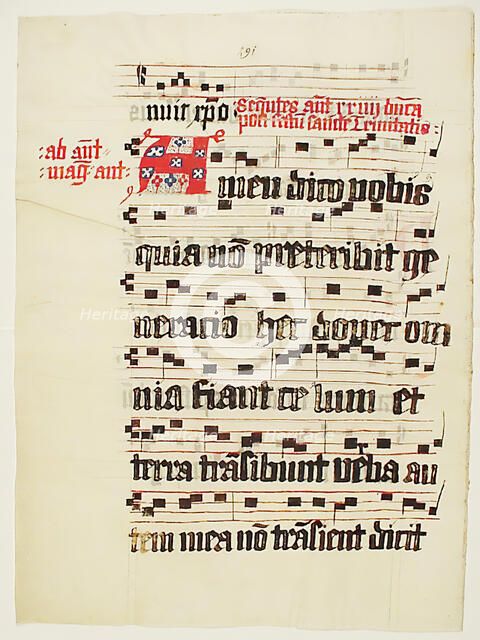 191
nuit xp̄o Sequtes añt xxiiij dūca
post festū sancte Trinitatis
ab añt
mag̃ ant
Amen dico vobis
quia nō preteribit ge
neracio hec donec om
nia fiant celum et
terra trāsibunt v̄ba au
tem mea nō trāsient dicit
Heritage
Heritage